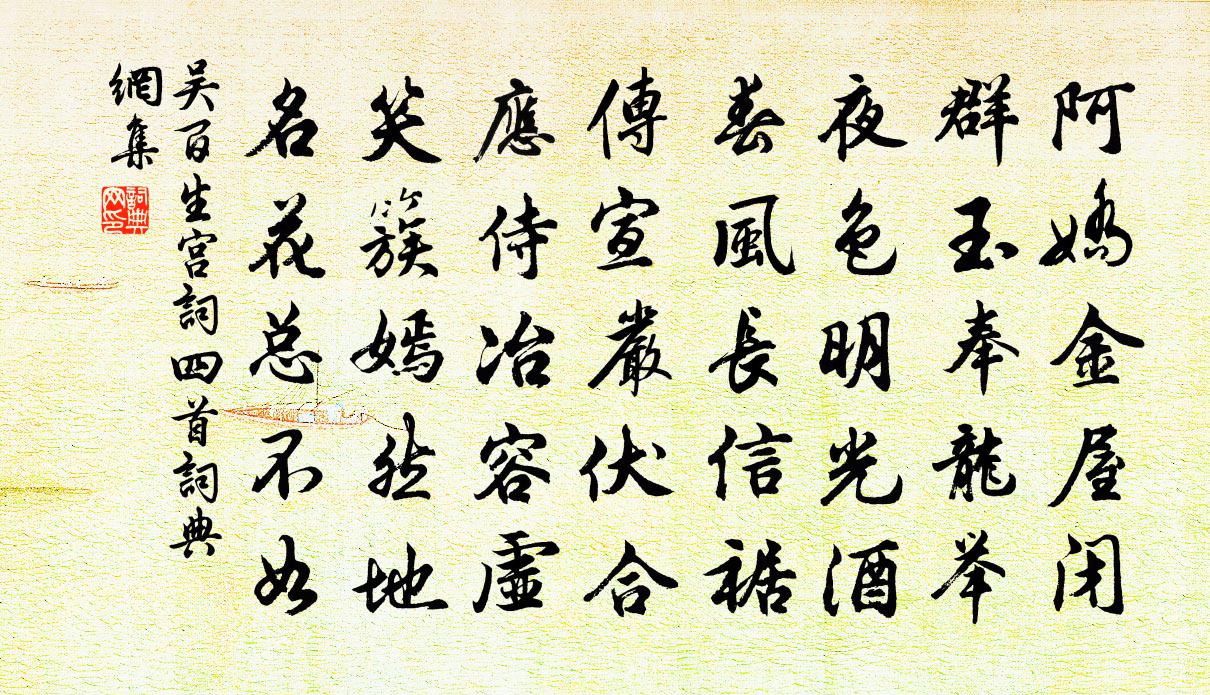 阿嬌金屋閉
群玉奉龍举
夜色明光酒
春風長信裾
傳宣嚴伏合
應侍冶容虛
笑簇嫣然地
名花总不如
吴百生宫詞四首詞典
網集
詞典